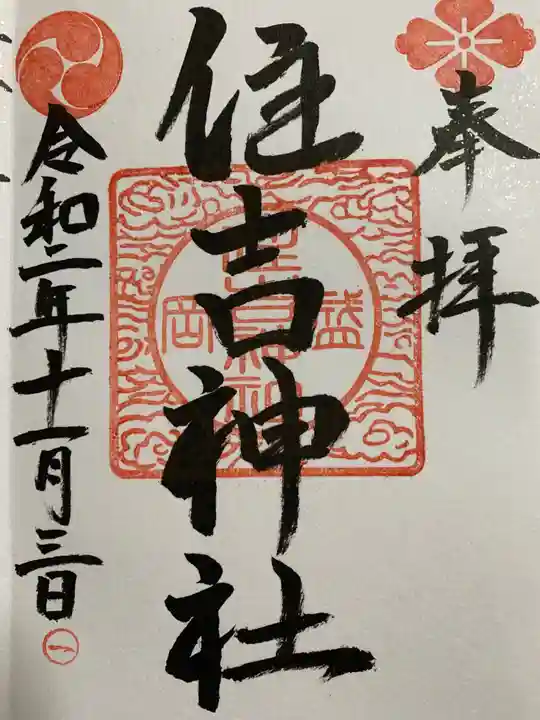 奉拝
住吉神社
盛岡
住吉神社
令和二年十一月三日
一